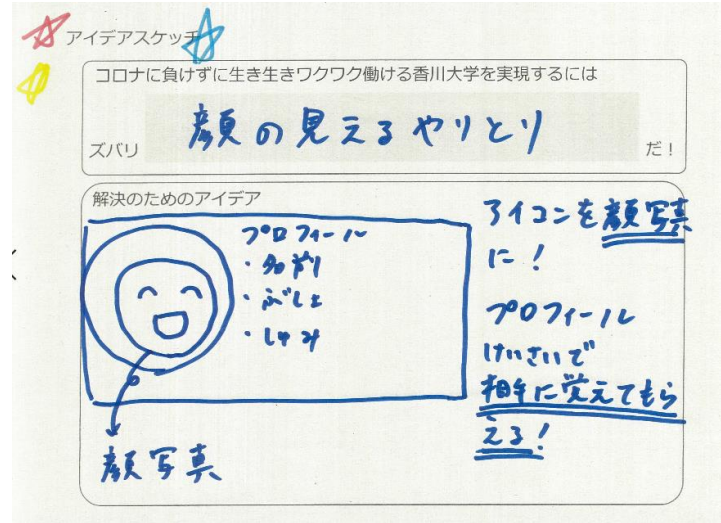 アイデアスケッチ
コロナに負けずに生き生きワクワク働ける香川大学を実現するには
ズバリ 顔の見えるやりとり だ！
解決のためのアイデア
プロフィール
・名前
・ぶしょ
・しゅみ
顔写真
アイコンを顔写真
に！
プロフィール
けいさいで
相手に覚えてもら
える！